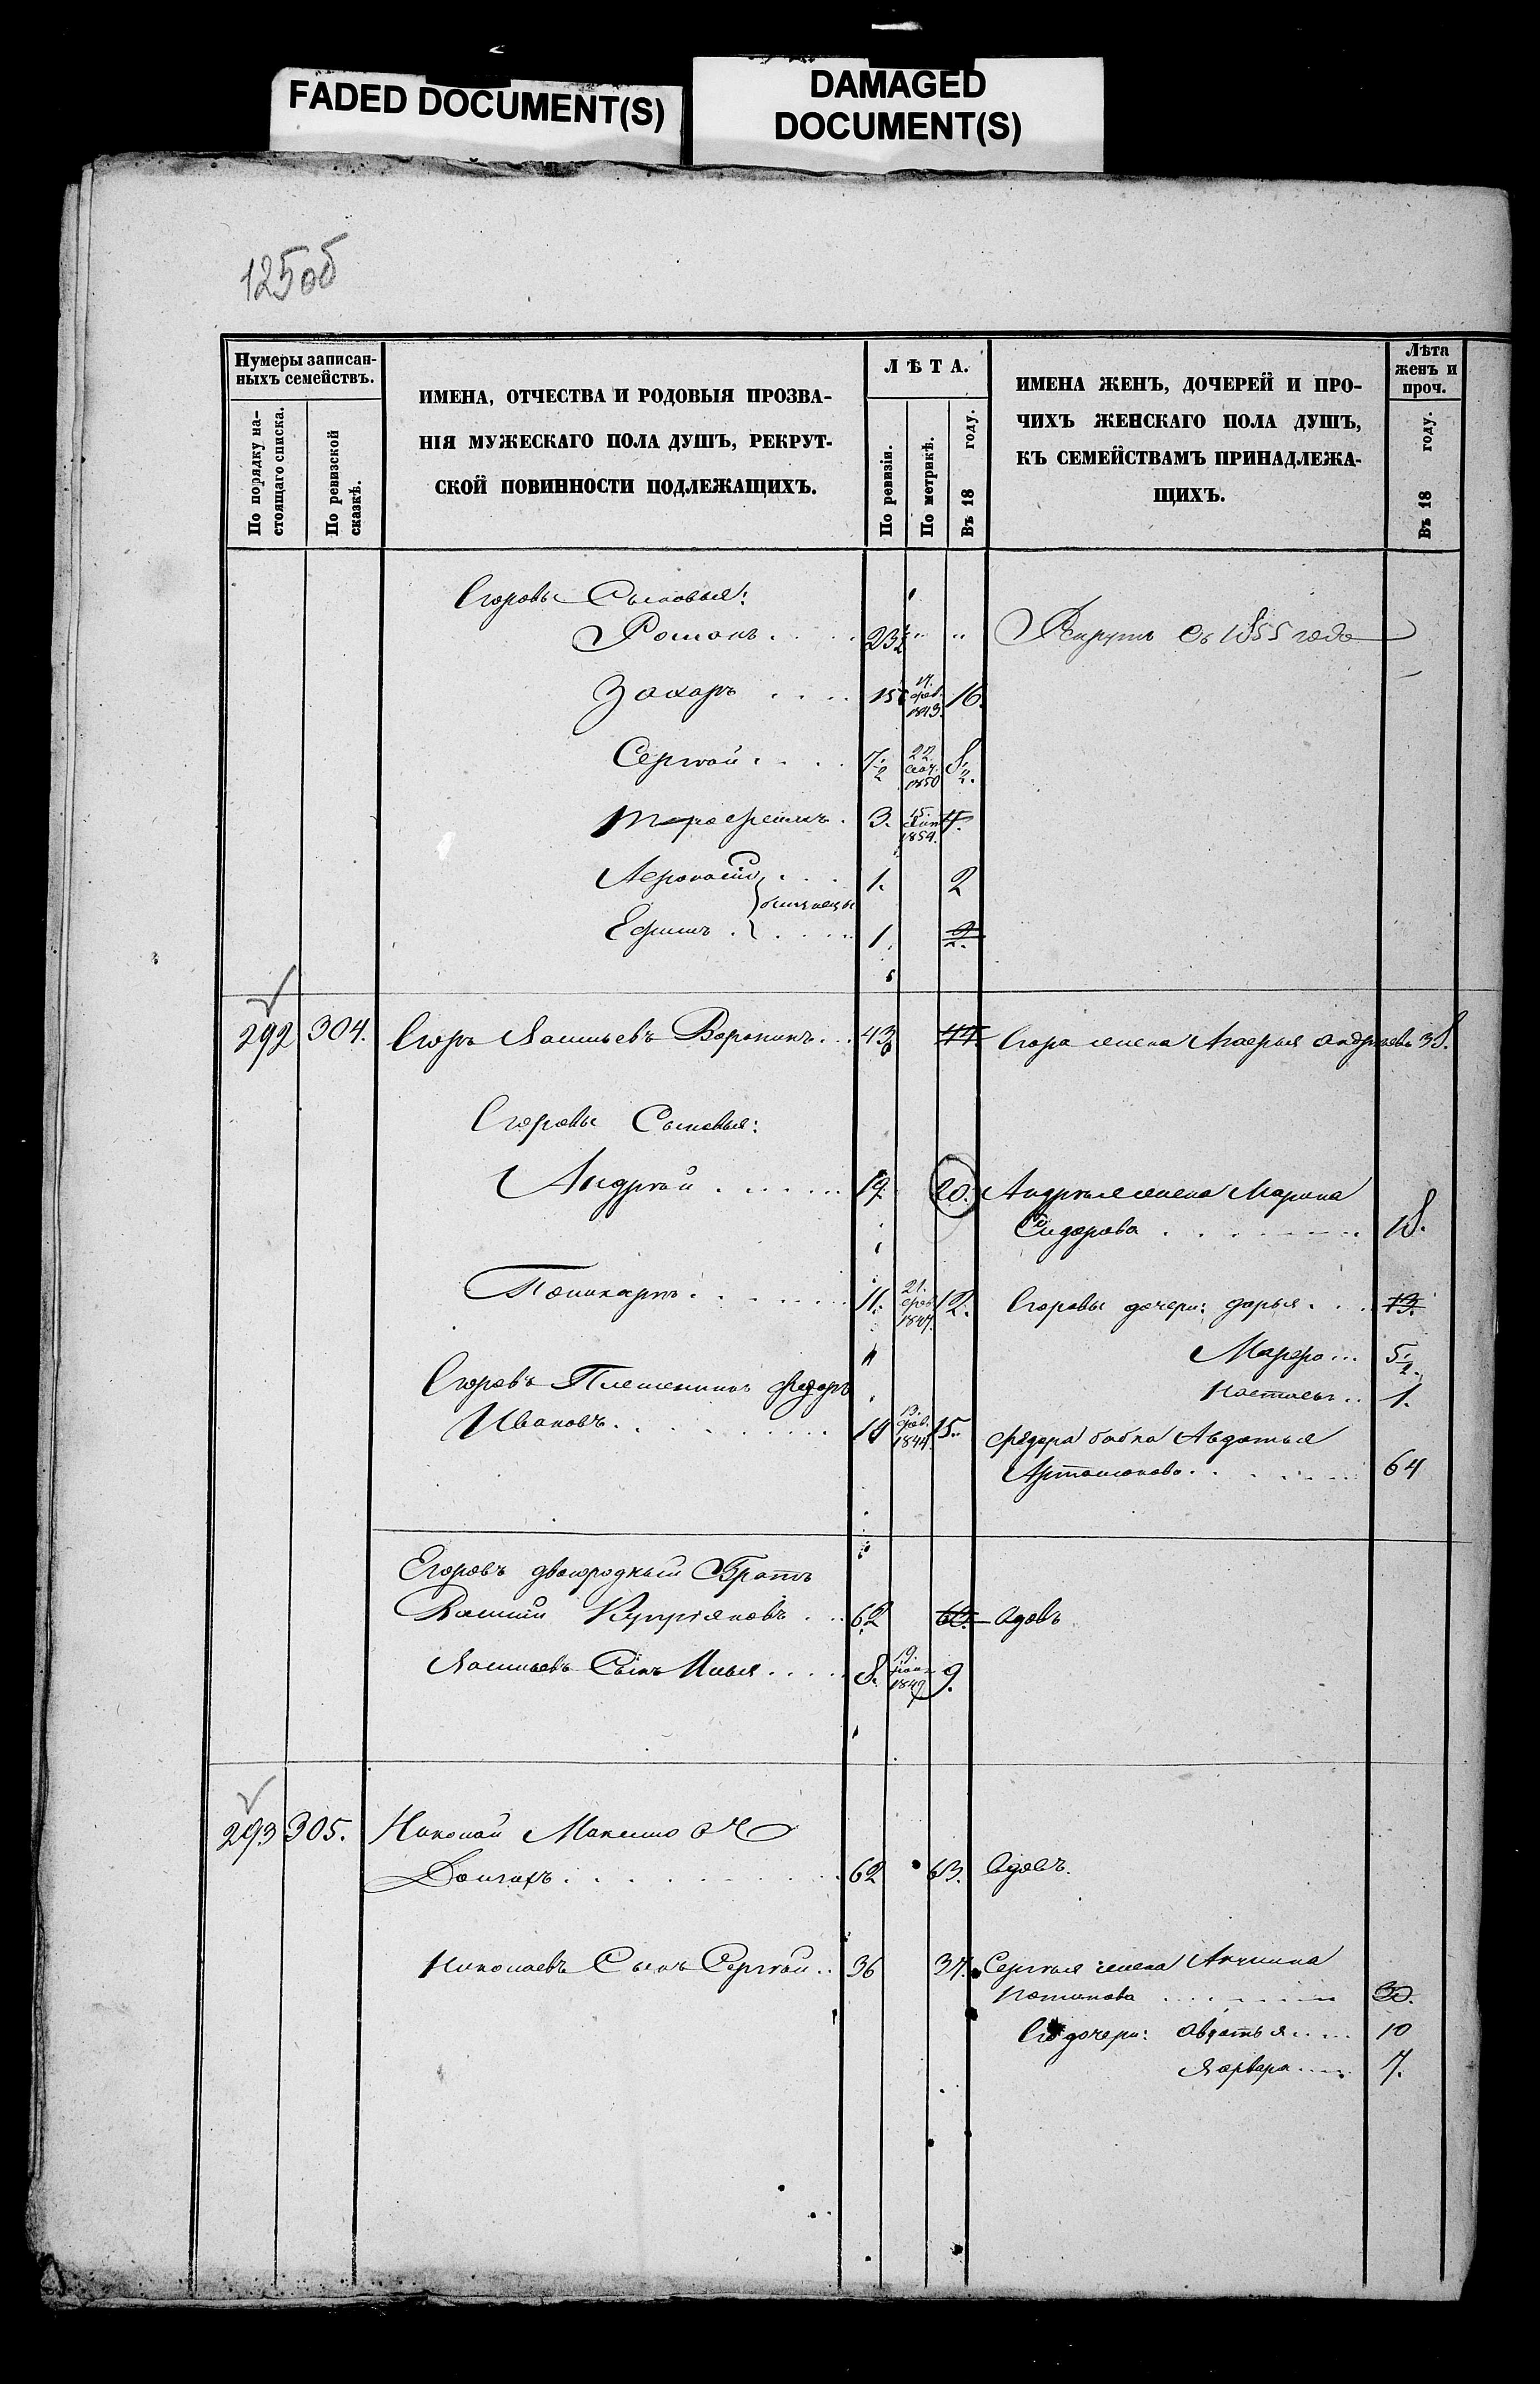 FADED DOCUMENT(S)
DAMAGED
DOCUMENT(S)
125об
Нумеры записан-
ныхъ семействъ.
По порядку на-
стоящаго списка.
По ревизской
сказкѣ.
ИМЕНА, ОТЧЕСТВА И РОДОВЫЯ ПРОЗВА-
НІЯ МУЖЕСКАГО ПОЛА ДУШЪ, РЕКРУТ-
СКОЙ ПОВИННОСТИ ПОДЛЕЖАЩИХЪ.
ЛѢТА.
По ревизіи.
По метрикѣ.
Въ 18 году.
ИМЕНА ЖЕНЪ, ДОЧЕРЕЙ И ПРО-
ЧИХЪ ЖЕНСКАГО ПОЛА ДУШЪ,
КЪ СЕМЕЙСТВАМЪ ПРИНАДЛЕЖА-
ЩИХЪ.
Лѣта
женъ и
проч.
Въ 18 году.
Егоровы Сыновья:
Романъ . . . . 23½ " " Рекрутъ съ 1855 года
Захаръ . . . . 15 14. фев. 1843. 16.
Сергѣй . . . . 7½ 22. 1850 8½.
Трофимъ . 3. 15. 1854. 4.
. . . . 1. 2
близнецы
Ефимъ . . . . . 1. 2.
292 304. Егоръ Васильевъ Воронинъ . . . 43 44. Егора жена Андреева 38.
Егоровы Сыновья:
Андрѣй . . . . . . 19. 20. Андрѣя жена Марина
Сидорова . . . . . . . 18.
Поликарпъ . . . . . . . 11. 21. фев. 1847. 12. Егоровы дочери: Дарья . . . 13.
Марфа . . . 5½.
Настасья . . 1.
Егоровъ Племянникъ Федоръ
Ивановъ . . . . . . . . . 14 13. фев. 1844. 15. Федора бабка Авдотья
Артамонова . . . . . . . 64
Егоровъ двоюродный Братъ
Василій Купріяновъ . . . 62 63. вдовъ
Васильевъ Сынъ Илья . . . . 8. 19. 1849 9.
293 305. Николай Максимовъ
Долгихъ . . . . . . . . . . 62 63. вдовъ.
Николаевъ Сынъ Сергѣй . . 36 37. Сергѣя жена Акулина
Потапова . . . . . . . 30.
Его дочери: Авдотья . . . . 10
Варвара . . . . 7.